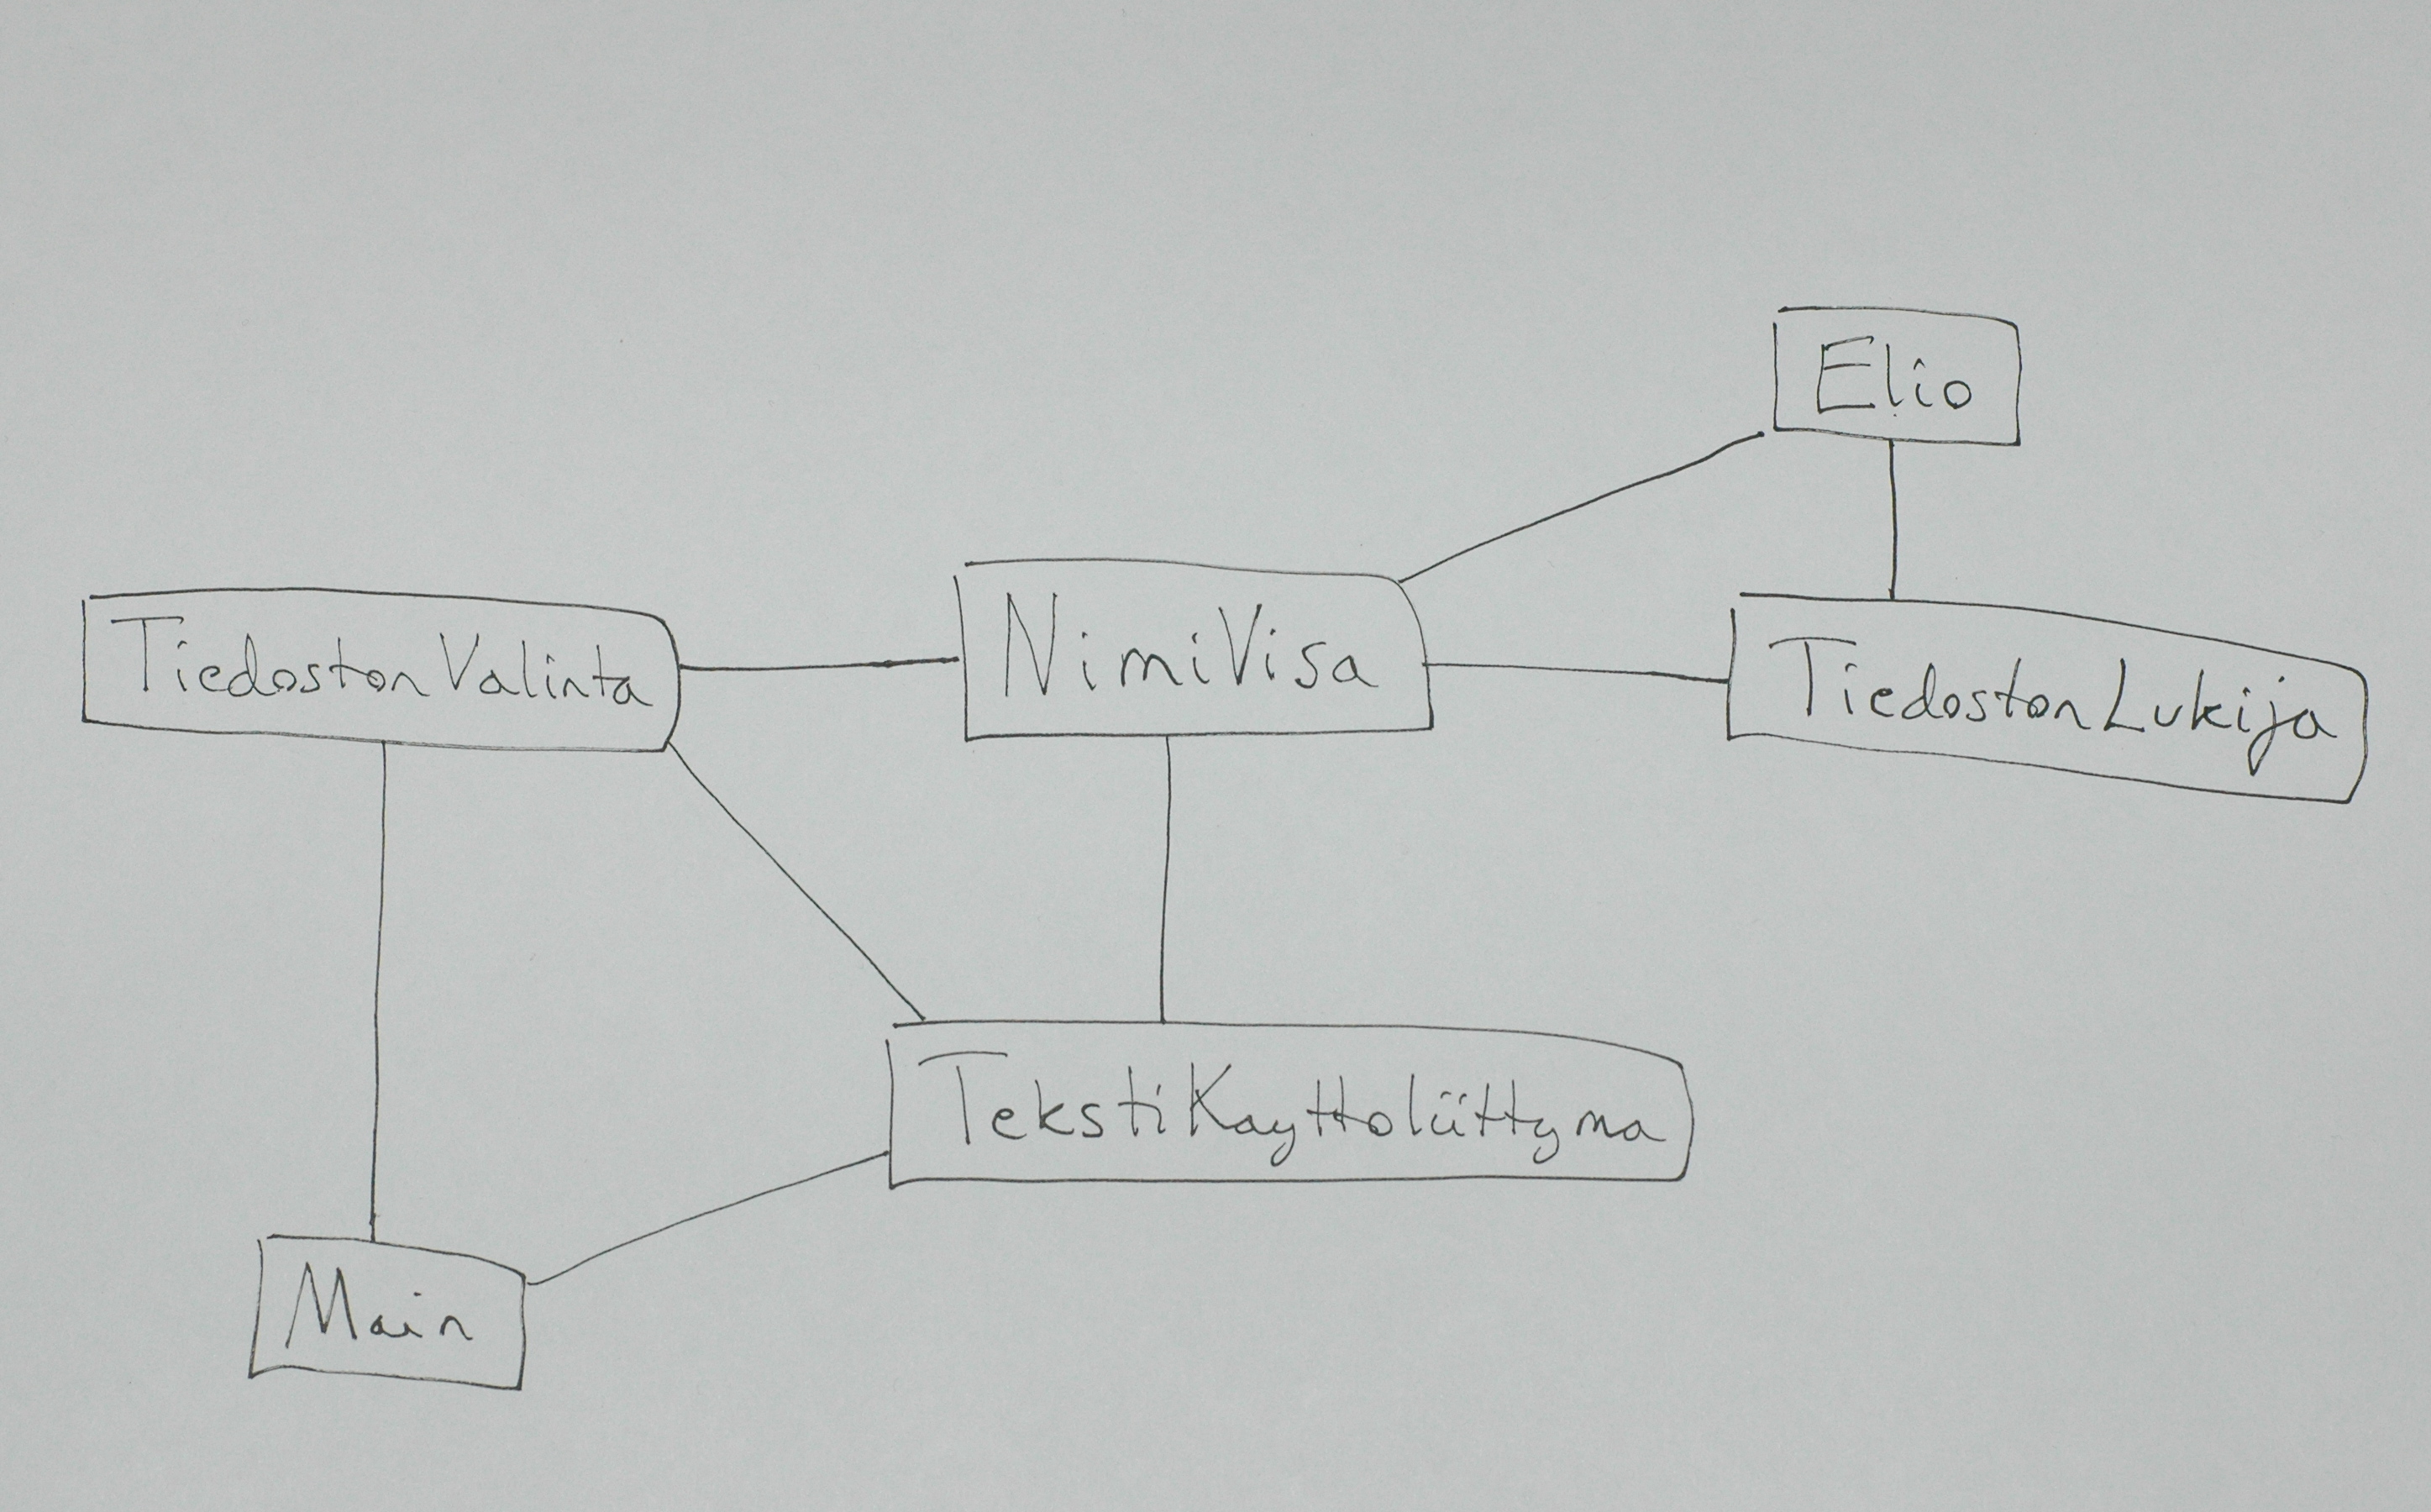 Elio
TiedostonValinta
NimiVisa
TiedostonLukija
TekstiKayttoliittyma
Main